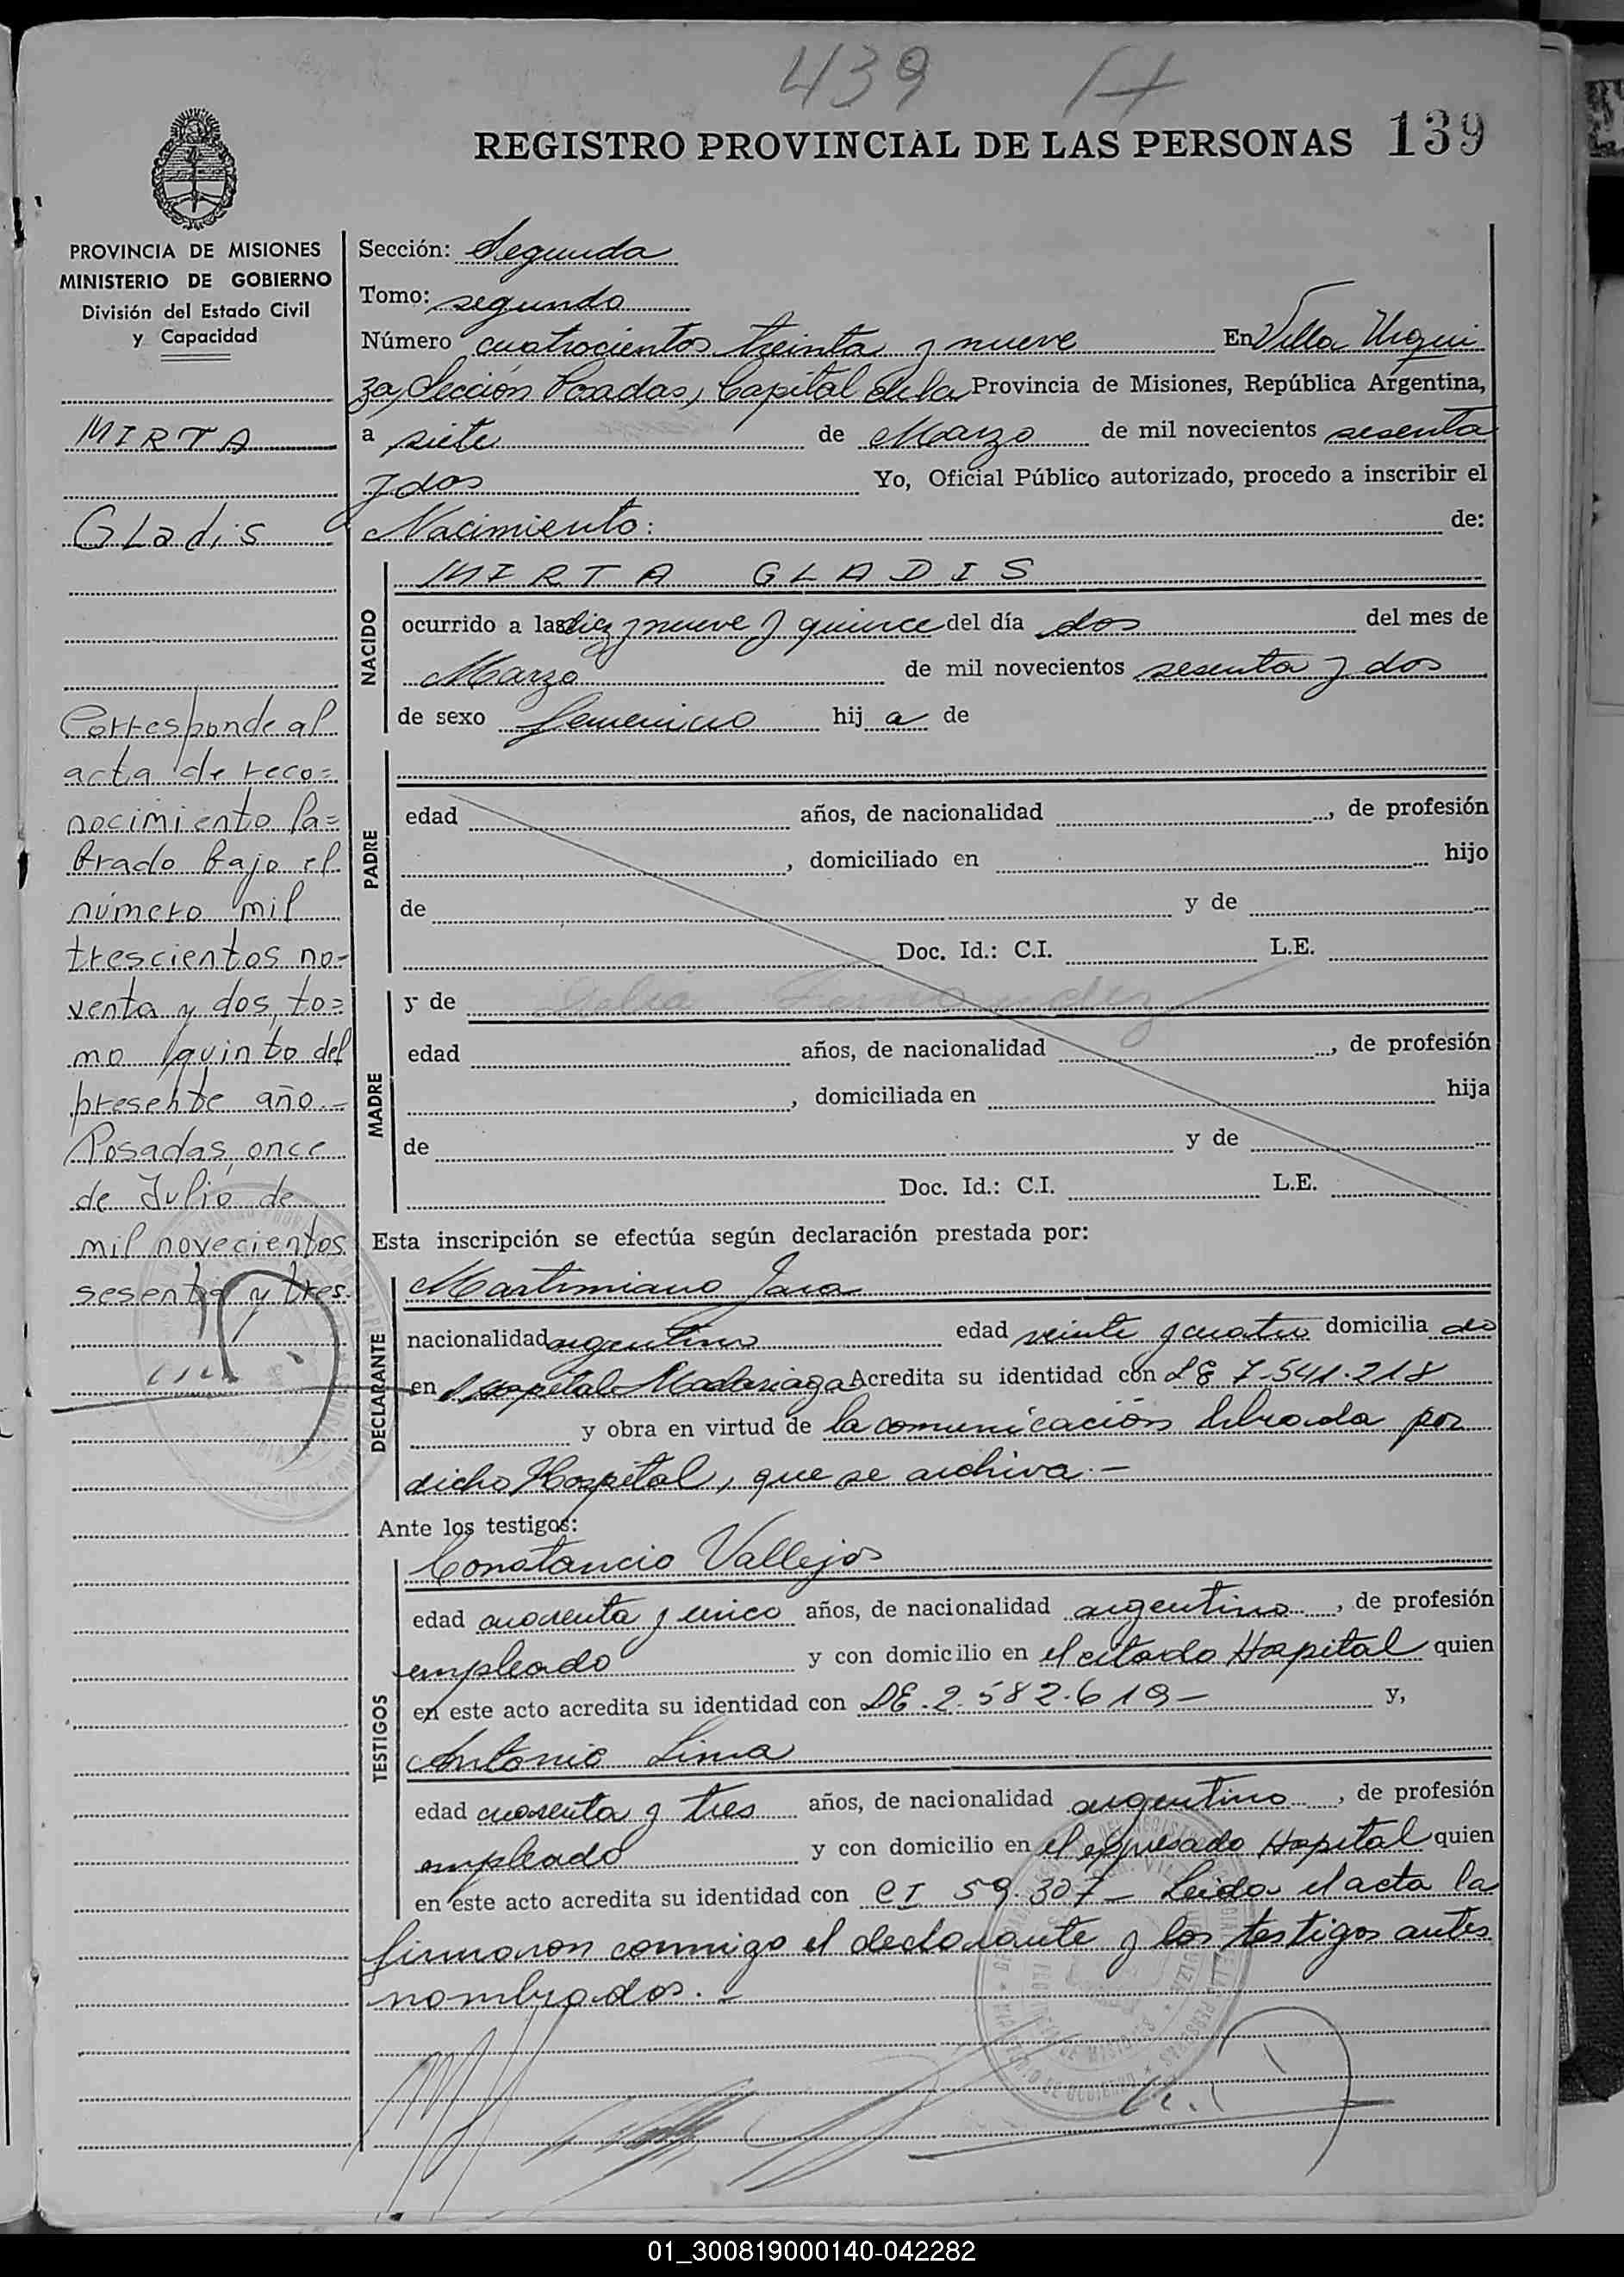 439
REGISTRO PROVINCIAL DE LAS PERSONAS 139
PROVINCIA DE MISIONES
MINISTERIO DE GOBIERNO
División del Estado Civil
y Capacidad
MIRTA
Gladis
Corresponde al
acta de reco=
nocimiento la=
brado bajo el
número mil
trescientos no-
venta y dos, to=
mo quinto del
presente año.-
Posadas, once
de Julio de
mil novecientos
sesenta y tres.
Sección: Segunda
Tomo: segundo
Número cuatrocientos treinta y nueve En Villa Urqui
za, Sección Posadas, Capital de la Provincia de Misiones, República Argentina,
a siete de Marzo de mil novecientos sesenta
y dos Yo, Oficial Público autorizado, procedo a inscribir el
Nacimiento: de:
NACIDO
MIRTA GLADIS
ocurrido a las diez y nueve y quince del día dos del mes de
Marzo de mil novecientos sesenta y dos
de sexo femenino hij a de
PADRE
edad años, de nacionalidad , de profesión
, domiciliado en hijo
de y de
Doc. Id.: C.I. L.E.
MADRE
y de Delia Fernandez
edad años, de nacionalidad , de profesión
, domiciliada en hija
de y de
Doc. Id.: C.I. L.E.
Esta inscripción se efectúa según declaración prestada por:
DECLARANTE
Martimiano Jara
nacionalidad argentino edad veinte y cuatro domicilia do
en Hospital Madariaga Acredita su identidad con LE 7.541.218
y obra en virtud de la comunicación librada por
dicho Hospital, que se archiva.-
Ante los testigos:
TESTIGOS
Constancio Vallejos
edad cuarenta y cinco años, de nacionalidad argentino , de profesión
empleado y con domicilio en el citado Hospital quien
en este acto acredita su identidad con LE. 2.582.619- y,
Antonio Lima
edad cuarenta y tres años, de nacionalidad argentino , de profesión
empleado y con domicilio en el expresado Hospital quien
en este acto acredita su identidad con CI 59.307- Leida el acta la
firmaron conmigo el declarante y los testigos antes
nombrados.-
01_300819000140-042282